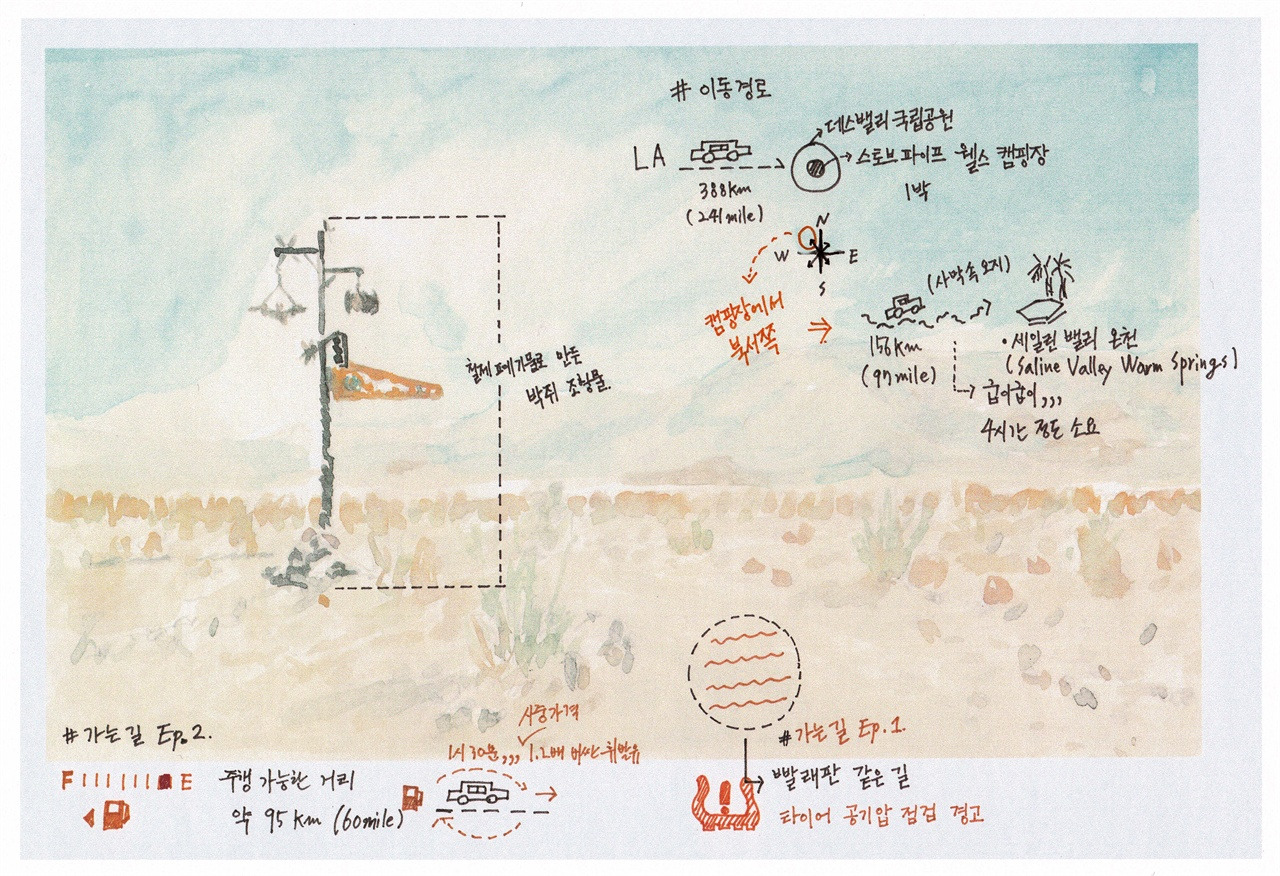 # 이동경로
LA
388km
(241mile)
데스밸리 국립공원
스토브파이프 웰스 캠핑장
1박
N
W E
S
캠핑장에서
북서쪽
(사막속오지)
156km
(97mile)
• 세일린 밸리 온천
(Saline Valley Warm Springs)
굽이굽이,,,
4시간 정도 소요
철제 폐기물로 만든
박쥐 조형물.
# 가는길 Ep.2.
F E
주행 가능한 거리
약 95km (60mile)
시중가격
1시 30분,,, 1.2배 비싼 휘발유
# 가는길 Ep.1.
빨래판 같은 길
타이어 공기압 점검 경고